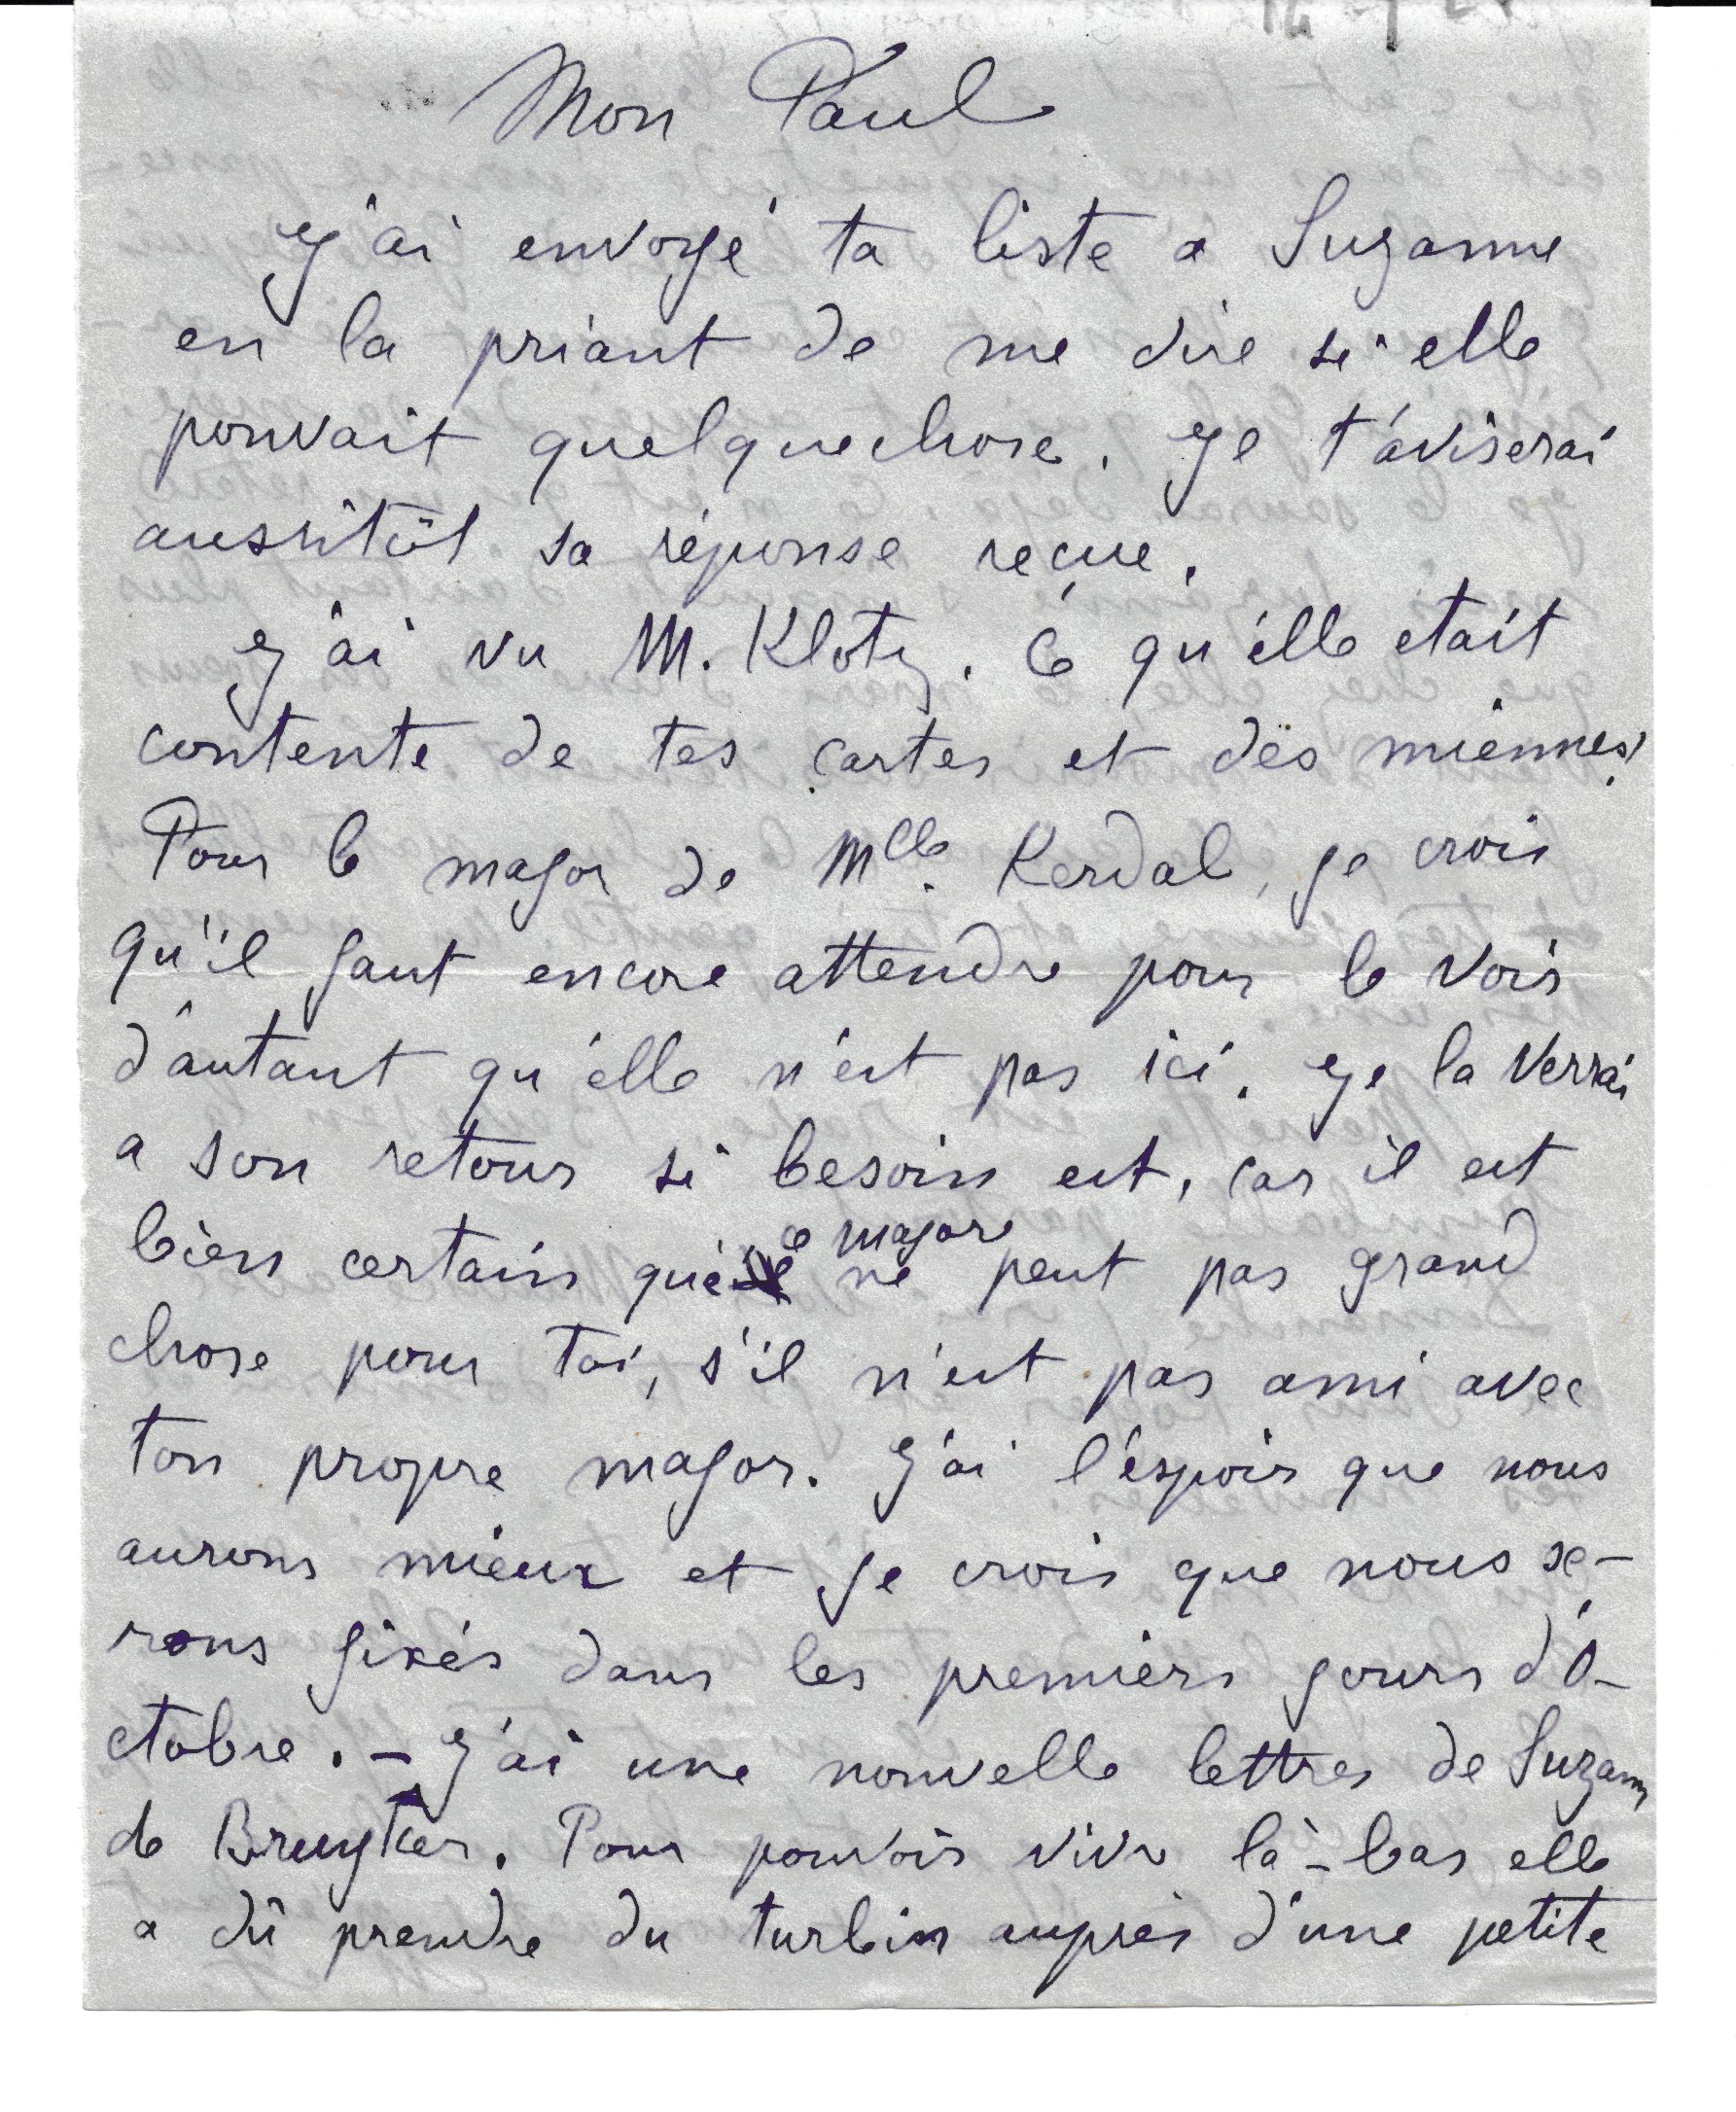 Mon Paul
J'ai envoyé ta liste a Suzanne
en la priant de me dire si elle
pouvait quelquechose. Je t'aviserai
aussitôt sa réponse reçue.
J'ai vu M. Klotz. Ce qu'elle etait
contente de tes cartes et des miennes!
Pour le major de Mlle. Kerdal, je crois
qu'il faut encore attendre pour le voir
d'autant qu'elle n'est pas ici. Je la verrai
a son retour si besoin est, car il est
bien certain que le major ne peut pas grand
chose pour toi, s'il n'est pas ami avec
ton propre major. J'ai l'éspoir que nous
aurons mieux et je crois que nous se-
rons fixés dans les premiers jours d'O-
ctobre. – J'ai une nouvelle lettres de Suzann
de Bruyker. Pour pouvoir vivre là-bas elle
a dû prendre du turbin auprès d'une petite